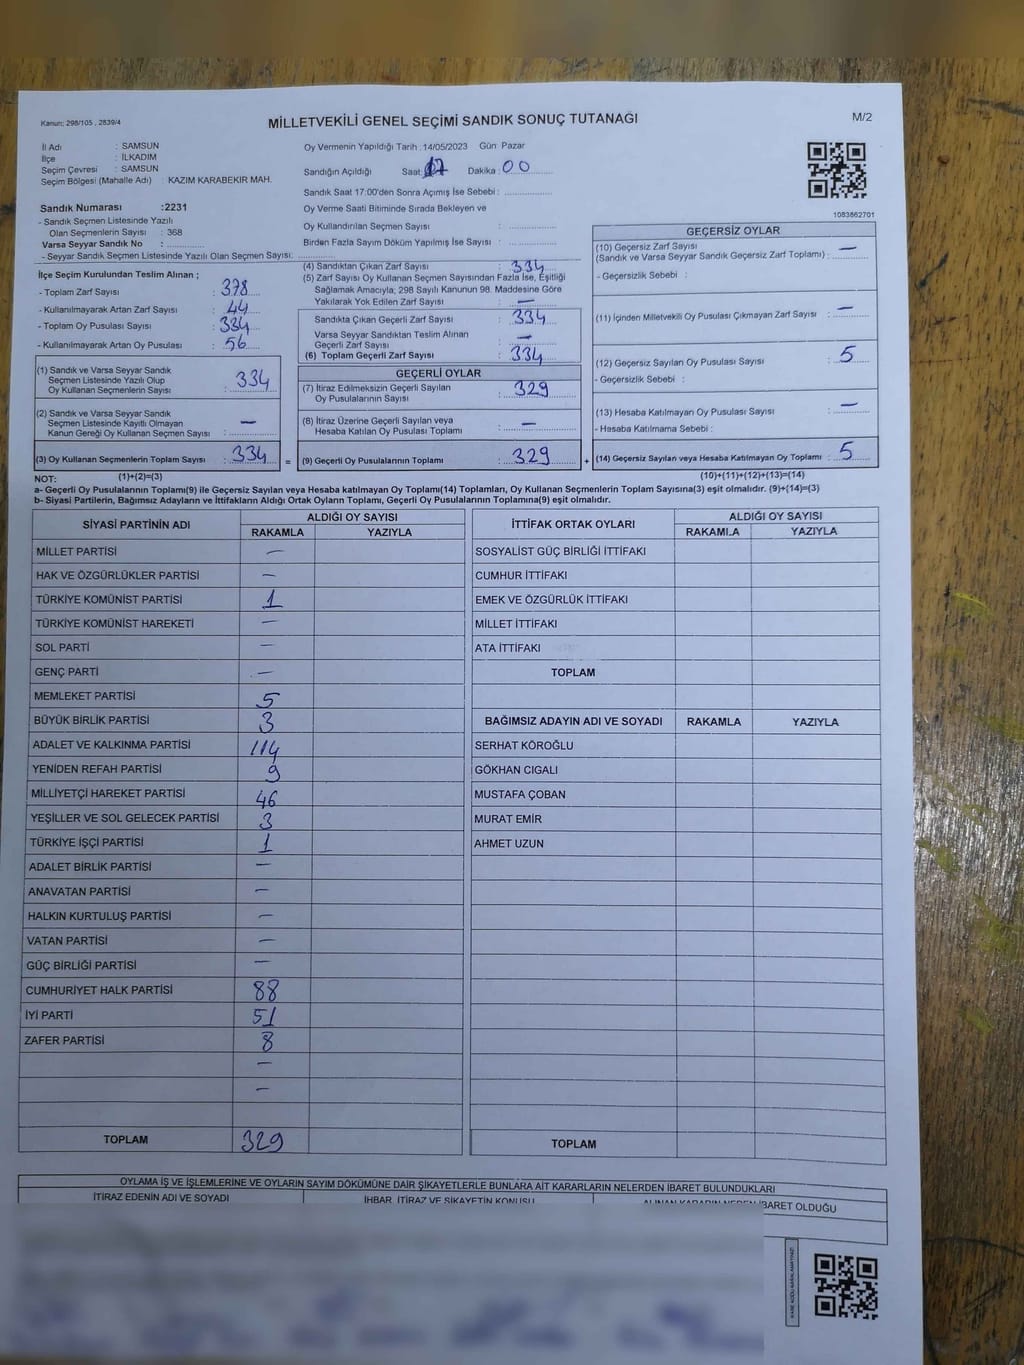 Kanun; 298/105 , 2839/4
MİLLETVEKİLİ GENEL SEÇİMİ SANDIK SONUÇ TUTANAĞI
M/2
İl Adı : SAMSUN
İlçe : İLKADIM
Seçim Çevresi : SAMSUN
Seçim Bölgesi (Mahalle Adı) : KAZIM KARABEKİR MAH.
Sandık Numarası :2231
- Sandık Seçmen Listesinde Yazılı
Olan Seçmenlerin Sayısı : 368
Varsa Seyyar Sandık No :
- Seyyar Sandık Seçmen Listesinde Yazılı Olan Seçmen Sayısı:
Oy Vermenin Yapıldığı Tarih :14/05/2023 Gün: Pazar
Sandığın Açıldığı Saat: 17 Dakika : 00
Sandık Saat 17:00'den Sonra Açımış İse Sebebi :
Oy Verme Saati Bitiminde Sırada Bekleyen ve
Oy Kullandırılan Seçmen Sayısı :
Birden Fazla Sayım Döküm Yapılmış İse Sayısı :
1083862701
İlçe Seçim Kurulundan Teslim Alınan ;
- Toplam Zarf Sayısı : 378
- Kullanılmayarak Artan Zarf Sayısı : 44
- Toplam Oy Pusulası Sayısı : 334
- Kullanılmayarak Artan Oy Pusulası : 56
(1) Sandık ve Varsa Seyyar Sandık
Seçmen Listesinde Yazılı Olup
Oy Kullanan Seçmenlerin Sayısı : 334
(2) Sandık ve Varsa Seyyar Sandık
Seçmen Listesinde Kayıtlı Olmayan
Kanun Gereği Oy Kullanan Seçmen Sayısı : —
(3) Oy Kullanan Seçmenlerin Toplam Sayısı : 334
(4) Sandıktan Çıkan Zarf Sayısı : 334
(5) Zarf Sayısı Oy Kullanan Seçmen Sayısından Fazla İse, Eşitliği
Sağlamak Amacıyla; 298 Sayılı Kanunun 98. Maddesine Göre
Yakılarak Yok Edilen Zarf Sayısı : —
Sandıkta Çıkan Geçerli Zarf Sayısı : 334
Varsa Seyyar Sandıktan Teslim Alınan
Geçerli Zarf Sayısı : —
(6) Toplam Geçerli Zarf Sayısı : 334
GEÇERLİ OYLAR
(7) İtiraz Edilmeksizin Geçerli Sayılan
Oy Pusulalarının Sayısı : 329
(8) İtiraz Üzerine Geçerli Sayılan veya
Hesaba Katılan Oy Pusulası Toplamı : —
= (9) Geçerli Oy Pusulalarının Toplamı : 329
GEÇERSİZ OYLAR
(10) Geçersiz Zarf Sayısı —
(Sandık ve Varsa Seyyar Sandık Geçersiz Zarf Toplamı) :
- Geçersizlik Sebebi :
(11) İçinden Milletvekili Oy Pusulası Çıkmayan Zarf Sayısı : —
(12) Geçersiz Sayılan Oy Pusulası Sayısı : 5
- Geçersizlik Sebebi :
(13) Hesaba Katılmayan Oy Pusulası Sayısı : —
- Hesaba Katılmama Sebebi :
+ (14) Geçersiz Sayılan veya Hesaba Katılmayan Oy Toplamı : 5
NOT: (1)+(2)=(3) (10)+(11)+(12)+(13)=(14)
a- Geçerli Oy Pusulalarının Toplamı(9) ile Geçersiz Sayılan veya Hesaba katılmayan Oy Toplamı(14) Toplamları, Oy Kullanan Seçmenlerin Toplam Sayısına(3) eşit olmalıdır. (9)+(14)=(3)
b- Siyasi Partilerin, Bağımsız Adayların ve İttifakların Aldığı Ortak Oyların Toplamı, Geçerli Oy Pusulalarının Toplamına(9) eşit olmalıdır.
SİYASİ PARTİNİN ADI ALDIĞI OY SAYISI
RAKAMLA YAZIYLA
MİLLET PARTİSİ —
HAK VE ÖZGÜRLÜKLER PARTİSİ —
TÜRKİYE KOMÜNİST PARTİSİ 1
TÜRKİYE KOMÜNİST HAREKETİ —
SOL PARTİ —
GENÇ PARTİ —
MEMLEKET PARTİSİ 5
BÜYÜK BİRLİK PARTİSİ 3
ADALET VE KALKINMA PARTİSİ 114
YENİDEN REFAH PARTİSİ 9
MİLLİYETÇİ HAREKET PARTİSİ 46
YEŞİLLER VE SOL GELECEK PARTİSİ 3
TÜRKİYE İŞÇİ PARTİSİ 1
ADALET BİRLİK PARTİSİ —
ANAVATAN PARTİSİ —
HALKIN KURTULUŞ PARTİSİ —
VATAN PARTİSİ —
GÜÇ BİRLİĞİ PARTİSİ —
CUMHURİYET HALK PARTİSİ 88
İYİ PARTİ 51
ZAFER PARTİSİ 8
—
—
TOPLAM 329
İTTİFAK ORTAK OYLARI ALDIĞI OY SAYISI
RAKAMLA YAZIYLA
SOSYALİST GÜÇ BİRLİĞİ İTTİFAKI
CUMHUR İTTİFAKI
EMEK VE ÖZGÜRLÜK İTTİFAKI
MİLLET İTTİFAKI
ATA İTTİFAKI
TOPLAM
BAĞIMSIZ ADAYIN ADI VE SOYADI RAKAMLA YAZIYLA
SERHAT KÖROĞLU
GÖKHAN CIGALI
MUSTAFA ÇOBAN
MURAT EMİR
AHMET UZUN
TOPLAM
OYLAMA İŞ VE İŞLEMLERİNE VE OYLARIN SAYIM DÖKÜMÜNE DAİR ŞİKAYETLERLE BUNLARA AİT KARARLARIN NELERDEN İBARET BULUNDUKLARI
İTİRAZ EDENİN ADI VE SOYADI İHBAR, İTİRAZ VE ŞİKAYETİN KONUSU ALINAN KARARIN NEDEN İBARET OLDUĞU